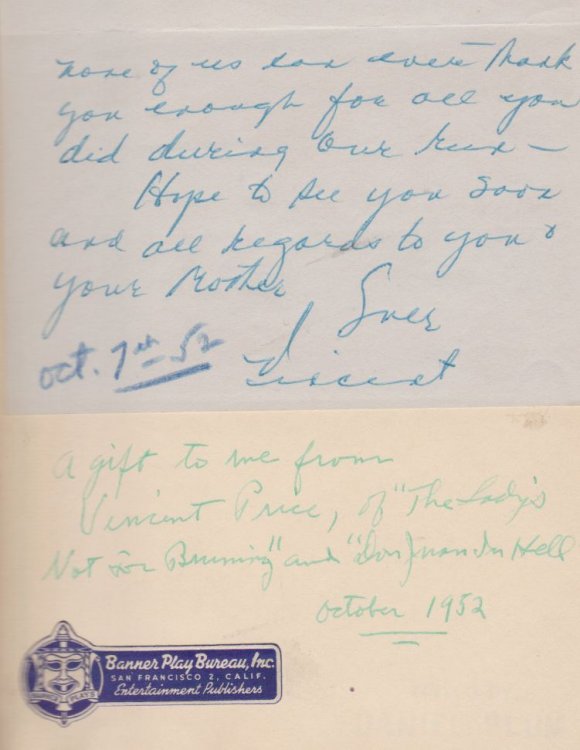 none of us can ever thank
you enough for all you
did during our run –
Hope to see you soon
and all regards to you &
your Mother
Ever
Vincent
Oct. 7th 52
A gift to me from
Vincent Price, of "The Lady's
Not For Burning" and "Don Juan In Hell
October 1952
Banner Play Bureau, Inc.
SAN FRANCISCO 2, CALIF.
Entertainment Publishers